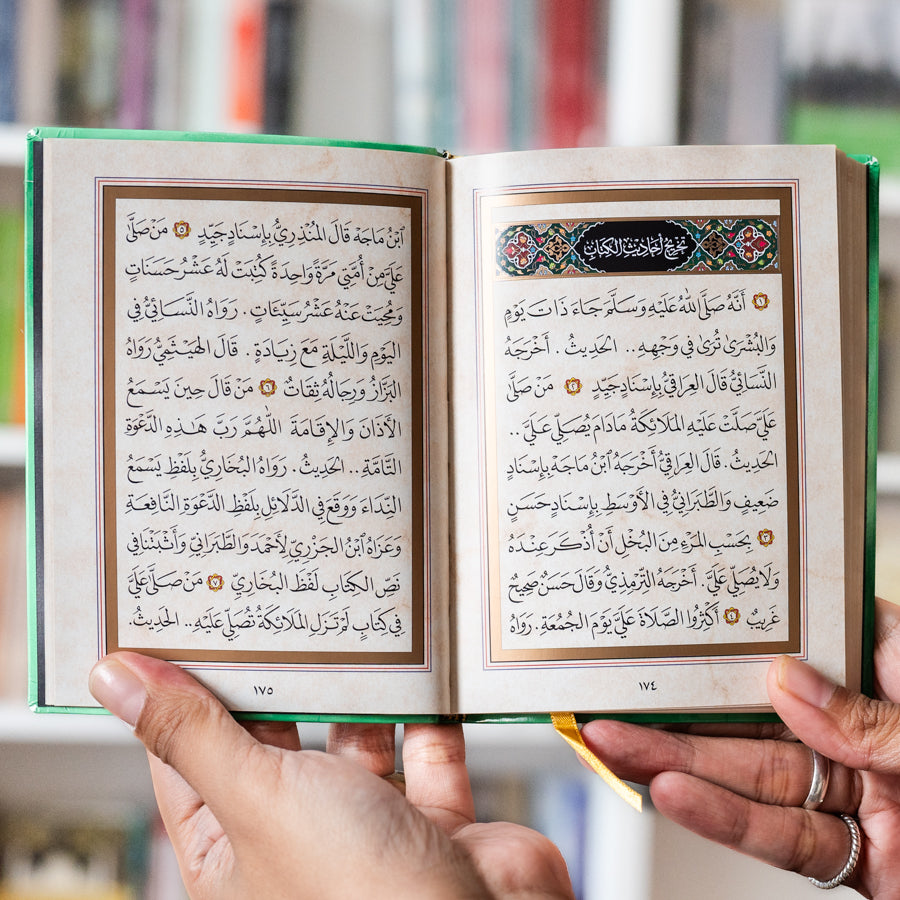 تخريج أحاديث الكتاب
١ أَنَّهُ صَلَّى اللهُ عَلَيْهِ وَسَلَّمَ جَاءَ ذَاتَ يَوْمٍ
وَالبُشْرَىٰ تُرَىٰ فِي وَجْهِهِ .. الحَدِيثُ . أَخْرَجَهُ
النَّسَائِيُّ قَالَ العِرَاقِيُّ بِإِسْنَادٍ جَيِّدٍ ٢ مَنْ صَلَّىٰ
عَلَيَّ صَلَّتْ عَلَيْهِ المَلَائِكَةُ مَادَامَ يُصَلِّي عَلَيَّ ..
الحَدِيثُ . قَالَ العِرَاقِيُّ أَخْرَجَهُ ابْنُ مَاجَهْ بِإِسْنَادٍ
ضَعِيفٍ وَالطَّبَرَانِيُّ فِي الأَوْسَطِ بِإِسْنَادٍ حَسَنٍ
٣ بِحَسْبِ المَرْءِ مِنَ البُخْلِ أَنْ أُذْكَرَ عِنْدَهُ
وَلَا يُصَلِّيَ عَلَيَّ . أَخْرَجَهُ التِّرْمِذِيُّ وَقَالَ حَسَنٌ صَحِيحٌ
غَرِيبٌ ٤ أَكْثِرُوا الصَّلَاةَ عَلَيَّ يَوْمَ الجُمُعَةِ . رَوَاهُ
١٧٤
ابْنُ مَاجَهْ قَالَ المُنْذِرِيُّ بِإِسْنَادٍ جَيِّدٍ ٥ مَنْ صَلَّىٰ
عَلَيَّ مِنْ أُمَّتِي مَرَّةً وَاحِدَةً كُتِبَتْ لَهُ عَشْرُ حَسَنَاتٍ
وَمُحِيَتْ عَنْهُ عَشْرُ سَيِّئَاتٍ . رَوَاهُ النَّسَائِيُّ فِي
اليَوْمِ وَاللَّيْلَةِ مَعَ زِيَادَةٍ . قَالَ الهَيْثَمِيُّ رَوَاهُ
البَزَّارُ وَرِجَالُهُ ثِقَاتٌ ٦ مَنْ قَالَ حِينَ يَسْمَعُ
الأَذَانَ وَالإِقَامَةَ اللَّهُمَّ رَبَّ هَـٰذِهِ الدَّعْوَةِ
التَّامَّةِ .. الحَدِيثُ . رَوَاهُ البُخَارِيُّ بِلَفْظِ يَسْمَعُ
النِّدَاءَ وَوَقَعَ فِي الدَّلَائِلِ بِلَفْظِ الدَّعْوَةِ النَّافِعَةِ
وَعَزَاهُ ابْنُ الجَزَرِيِّ لِأَحْمَدَ وَالطَّبَرَانِيِّ وَأَثْبَتْنَا فِي
نَصِّ الكِتَابِ لَفْظَ البُخَارِيِّ ٧ مَنْ صَلَّىٰ عَلَيَّ
فِي كِتَابٍ لَمْ تَزَلِ المَلَائِكَةُ تُصَلِّي عَلَيْهِ .. الحَدِيثُ .
١٧٥